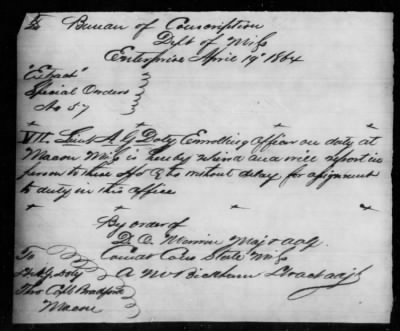 Bureau of Conscription
Dept of Miss
Enterprise April 19th 1864
"Extract"
Special Orders
No 57
VII. Lieut A G Doty Enrolling Officer on duty at
Macon Miss is hereby relievd and will report in
person to these Hd Qrs without delay for assignment
to duty in this office
By order of
D. C. Maj & aag
Comdt Cons State Miss
To
A G Doty
Thro Capt Bradford
Macon
A M Bickham